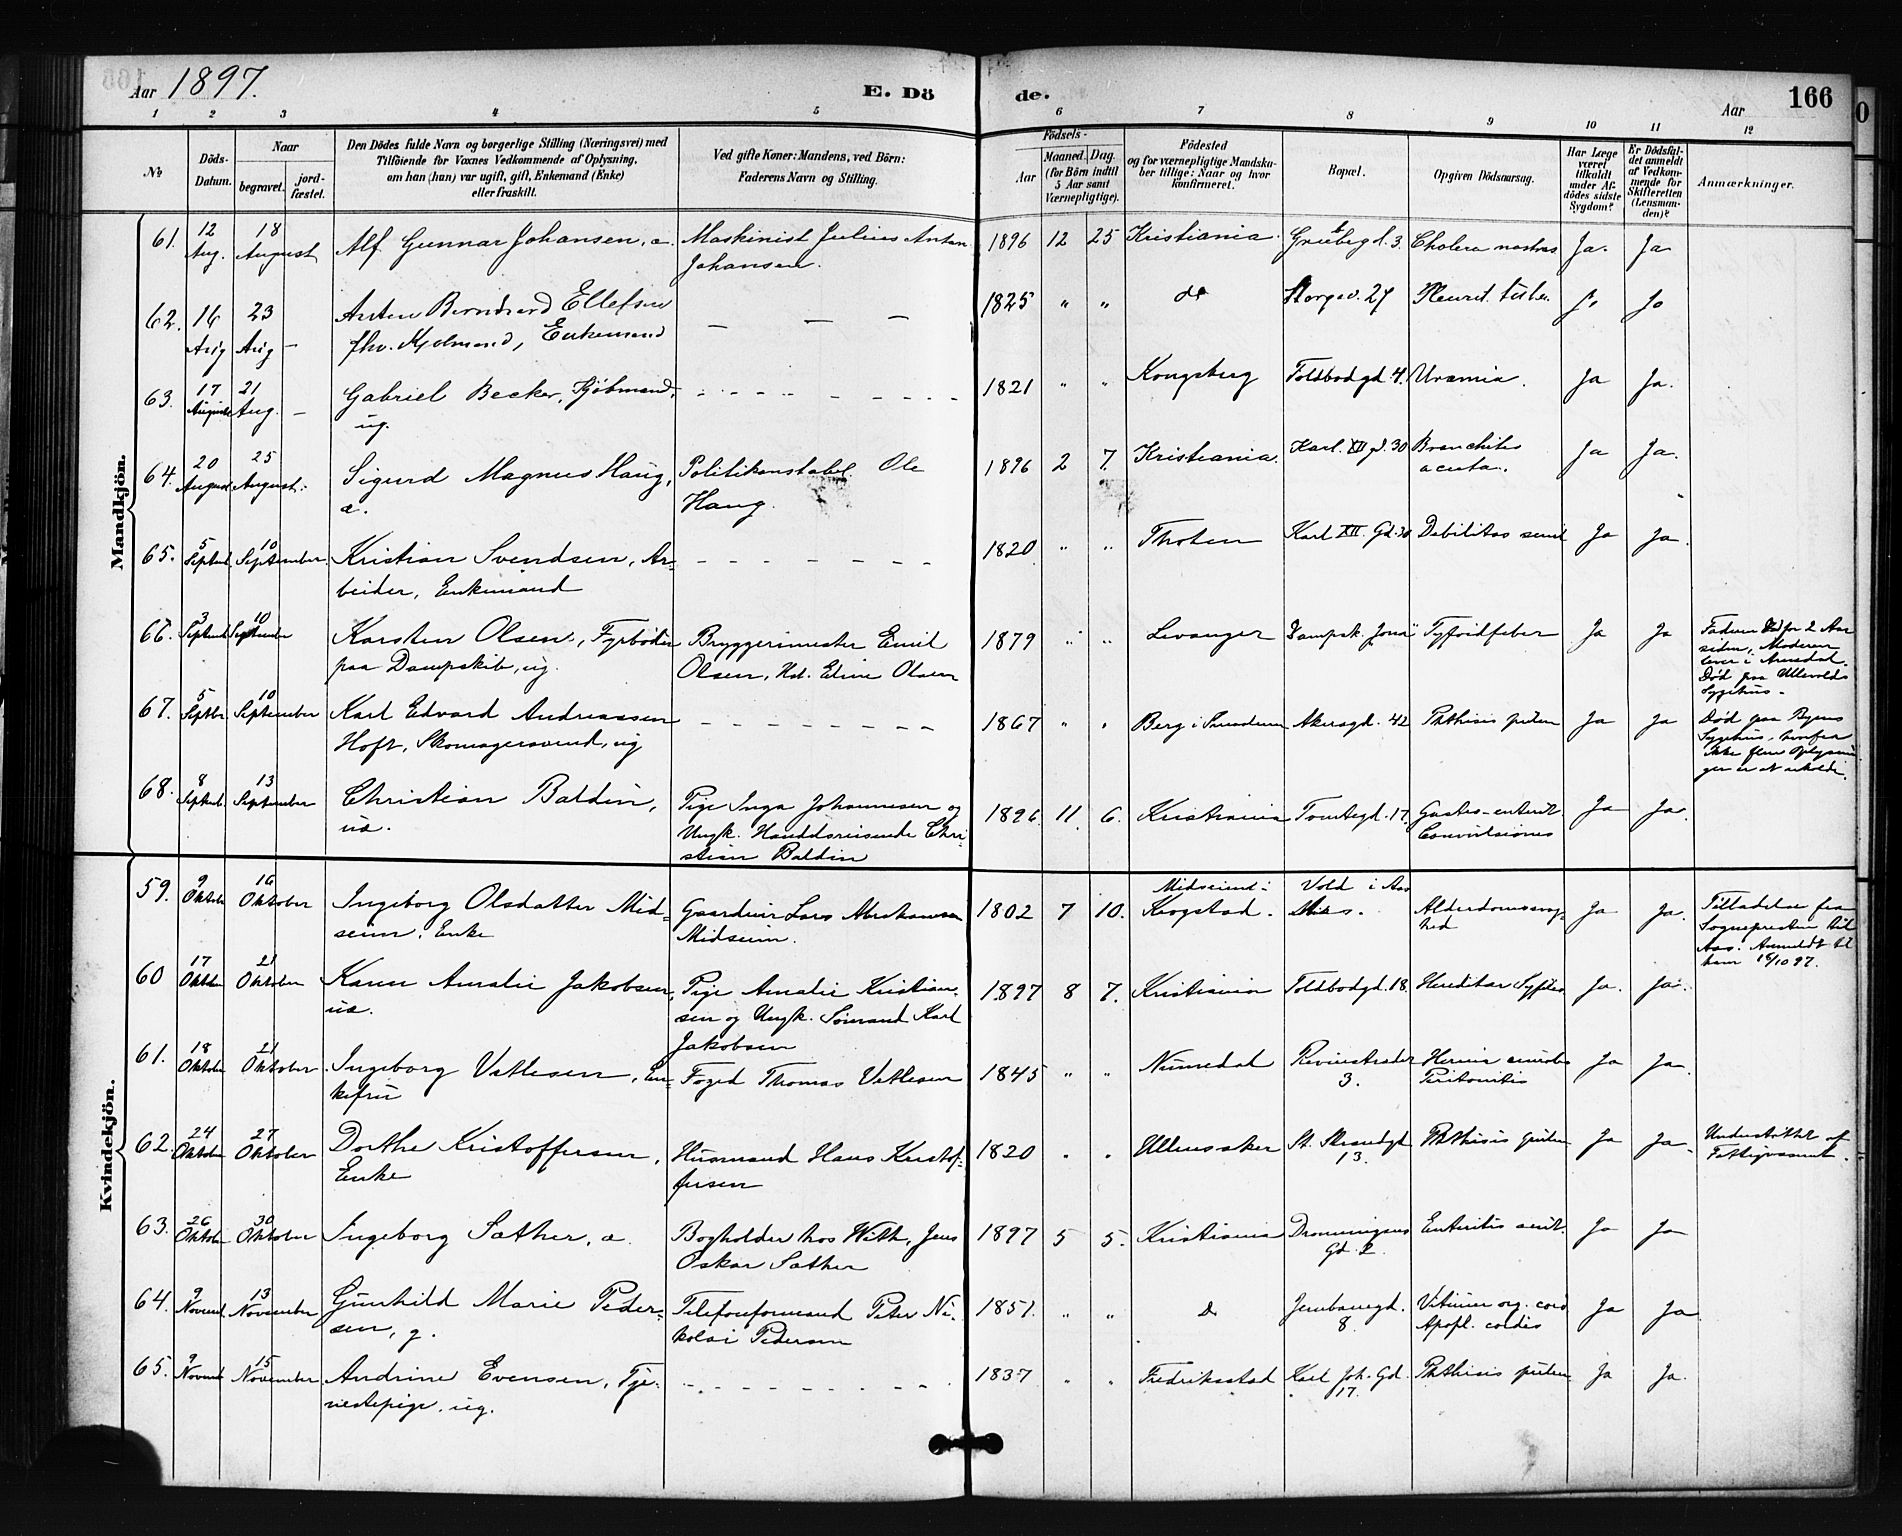 Aar 1897.
E. Dö
de.
Aar
166
1 2 3 4 5 6 7 8 9 10 11 12
№
Döds-Datum.
Naar
begravet.
jord-fæstet.
Den Dödes fulde Navn og borgerlige Stilling (Næringsvei) med
Tilföiende for Voxnes Vedkommende af Oplysning,
om han (hun) var ugift, gift, Enkemand (Enke)
eller fraskilt.
Ved gifte Koner: Mandens, ved Börn:
Faderens Navn og Stilling.
Födsels-
Aar
Maaned. Dag.
(for Börn indtil
5 Aar samt
Værnepligtige).
Födested
og for værnepligtige Mandska-
ber tillige: Naar og hvor
konfirmeret.
Bopæl.
Opgiven Dödsaarsag.
Har Læge
været
tilkaldt
under Af-
dödes sidste
Sygdom?
Er Dödsfal-
det anmeldt
af Vedkom-
mende for
Skifteretten
(Lensman-
den)?
Anmærkninger.
Mandkjön.
61. 12 Aug. 18 August Alf Gunnar Johansen, æ. Maskinist Julius Anton Johansen. 1896 12 25 Kristiania. Grubbegd. 3. Cholera nostras Ja. Ja
62. 16 Aug 23 Aug — Anton Berndhard Ellefsen fhv. Kjølmand, Enkemand — — — 1825 " " do Storgd. 27 Pleurit. tuber. Ja Ja
63. 17 August 21 Aug. — Gabriel Becker, Kjøbmand, ug. 1821 " " Kongsberg Toldbodgd. 4. Uræmia. Ja Ja.
64. 20 August 25 August. Sigurd Magnus Haug, æ. Politikonstabel Ole Haug. 1896 2 7. Kristiania. Karl XII gd. 30 Bronchitis acuta. Ja Ja.
65. 5 Septemb 10 September Kristian Svendsen, Ar-
beider, Enkemand 1820 " " Thoten Karl XII Gd. 30 Debilitas senil Ja Ja.
66. 3 Septemb 10 September Karsten Olsen, Fyrbøder
paa Dampskib, ug. Bryggerimester Emil
Olsen, Hst. Eline Olsen 1879 " " Levanger Dampsk. "Jona" Tyfoidfeber Ja Ja Faderen død for 2 Aar
siden, Moderen
lever i Arendal.
Død paa Ullevolds
Sygehus.
67. 5 Septbr. 10 September Karl Edvard Andreassen
Hoft, Skomagersvend, ug 1867 " " Berg i Smaalenene Akersgd. 42 Phthisis pulm Ja Ja Død paa Byens
Sygehus, hvorfra
ikke flere Oplysnin-
ger er at erholde.
68. 8 Septemb. 13 September Christian Baldin,
uæ. Pige Inga Johannesen og
Ungk. Handelsreisende Chri-
stian Baldin 1896. 11. 6. Kristiania Tomtegd. 17. Gastro-enterit.
Convulsiones Ja Ja.
Kvindekjön.
59. 9 Oktober 16 Oktober Ingeborg Olsdatter Mid-
seim, Enke Gaardeier Lars Abrahamsen
Midseim. 1802 7 10. Midseim i
Krogstad. Vold i Aas Alderdomssvag-
hed Ja Ja. Tilladelse fra
Sognepresten til
Aas. Anmeldt til
ham 16/10 97.
60 17 Oktober 21 Oktober Karen Amalie Jakobsen,
uæ. Pige Amalie Kristian-
sen og Ungk. Sømand Karl
Jakobsen 1897 8 7. Kristiania Toldbodgd. 18. Hereditær Syfilis Ja. Ja.
61. 18 Oktober 21 Oktober Ingeborg Vetlesen, En-
kefru Foged Thomas Vetlesen 1845 " " Numedal Revierstredet
3. Hernia cruralis
Peritonitis Ja Ja.
62. 24 Oktober 27 Oktober Dorthe Kristoffersen,
Enke Husmand Hans Kristof-
fersen 1820 " " Ullensaker St. Strandgd
13. Phthisis pulm Ja Ja. Understøttet af
Fattigvæsenet.
63. 26 Oktober 30 Oktober Ingeborg Sæther, æ. Bogholder hos With, Jens
Oskar Sæther 1897 5 5. Kristiania Dronningens
Gd. 2. Enteritis acut. Ja Ja
64. 9 Novemb. 13 November Gunhild Marie Peder-
sen, g. Telefonformand Peter Ni-
kolai Pedersen 1851. " " do Jernbanegd.
8. Vitium org. cord
Apopl. cordis Ja Ja.
65. 9 Novemb 15 November Andrine Evensen, Tje-
nestepige, ug. 1837 " " Fredriksstad Karl Joh. Gd.
17. Phthisis pulm Ja Ja.